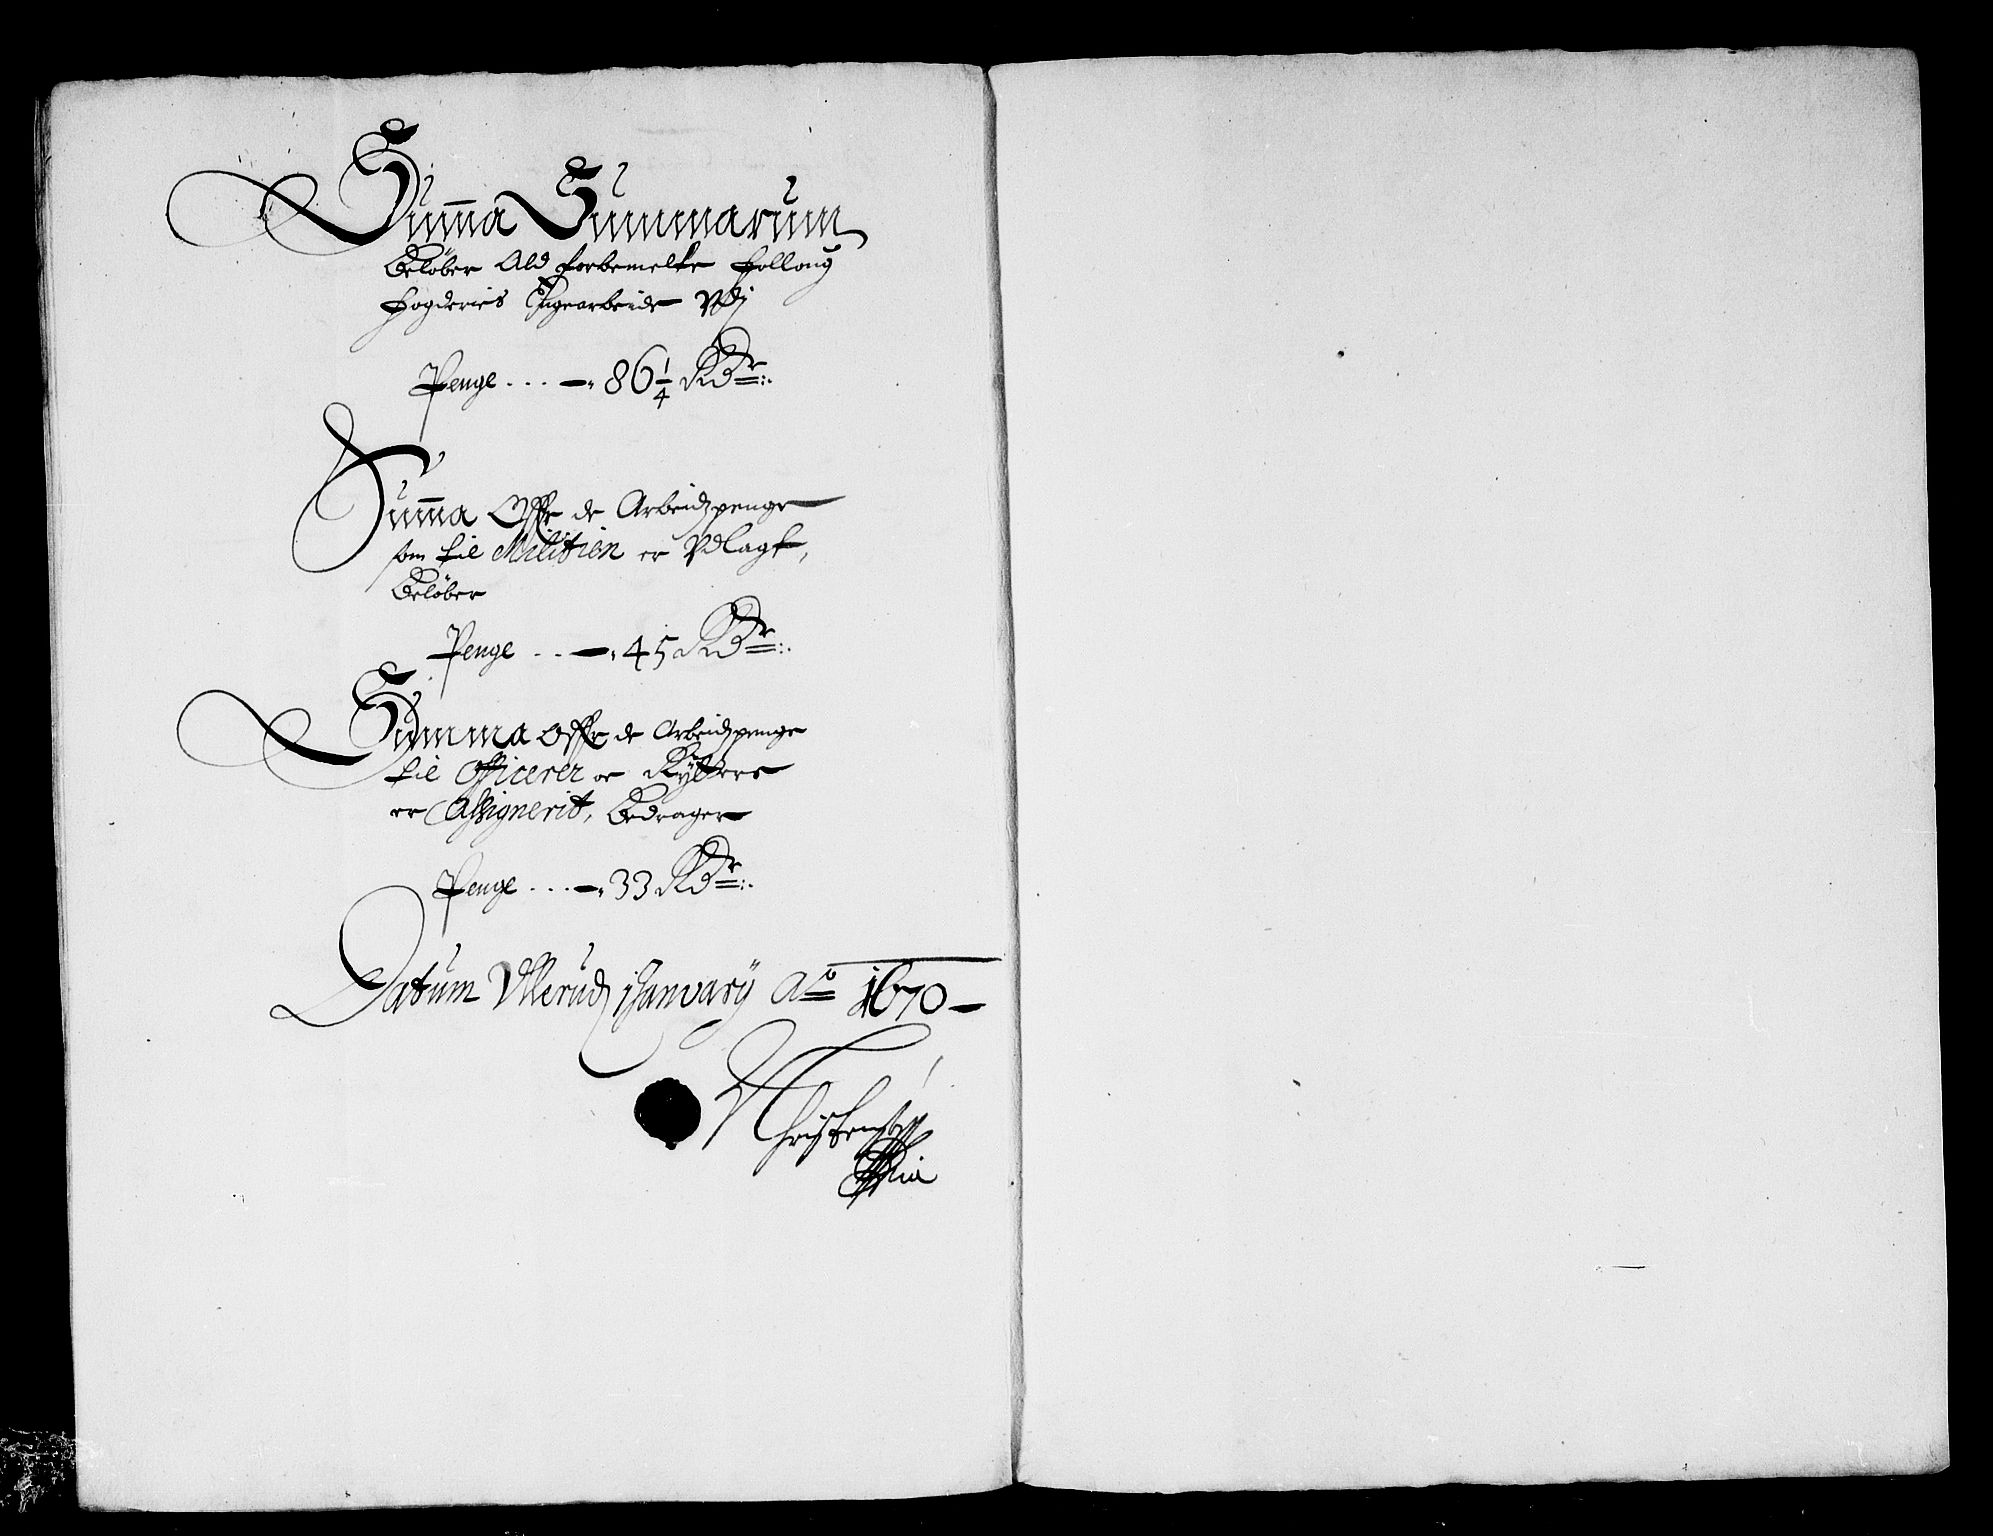 Summa Summarum
Beløber Ald forbemelte Folloug
fogderies Ugearbeide Vdj
Penge . . . — 86 1/4 Rdr
Summa Offr de Arbeidzpenge
som til Militien er Vdlagt,
Beløber
Penge . . — 45 Rdr
Summa Offr de Arbeidzpenge
til Officerer oc Rÿttere
er Assignerit, Bedrager
Penge . . . — 33 Rdr
Datum 1 January Ao 1670 —